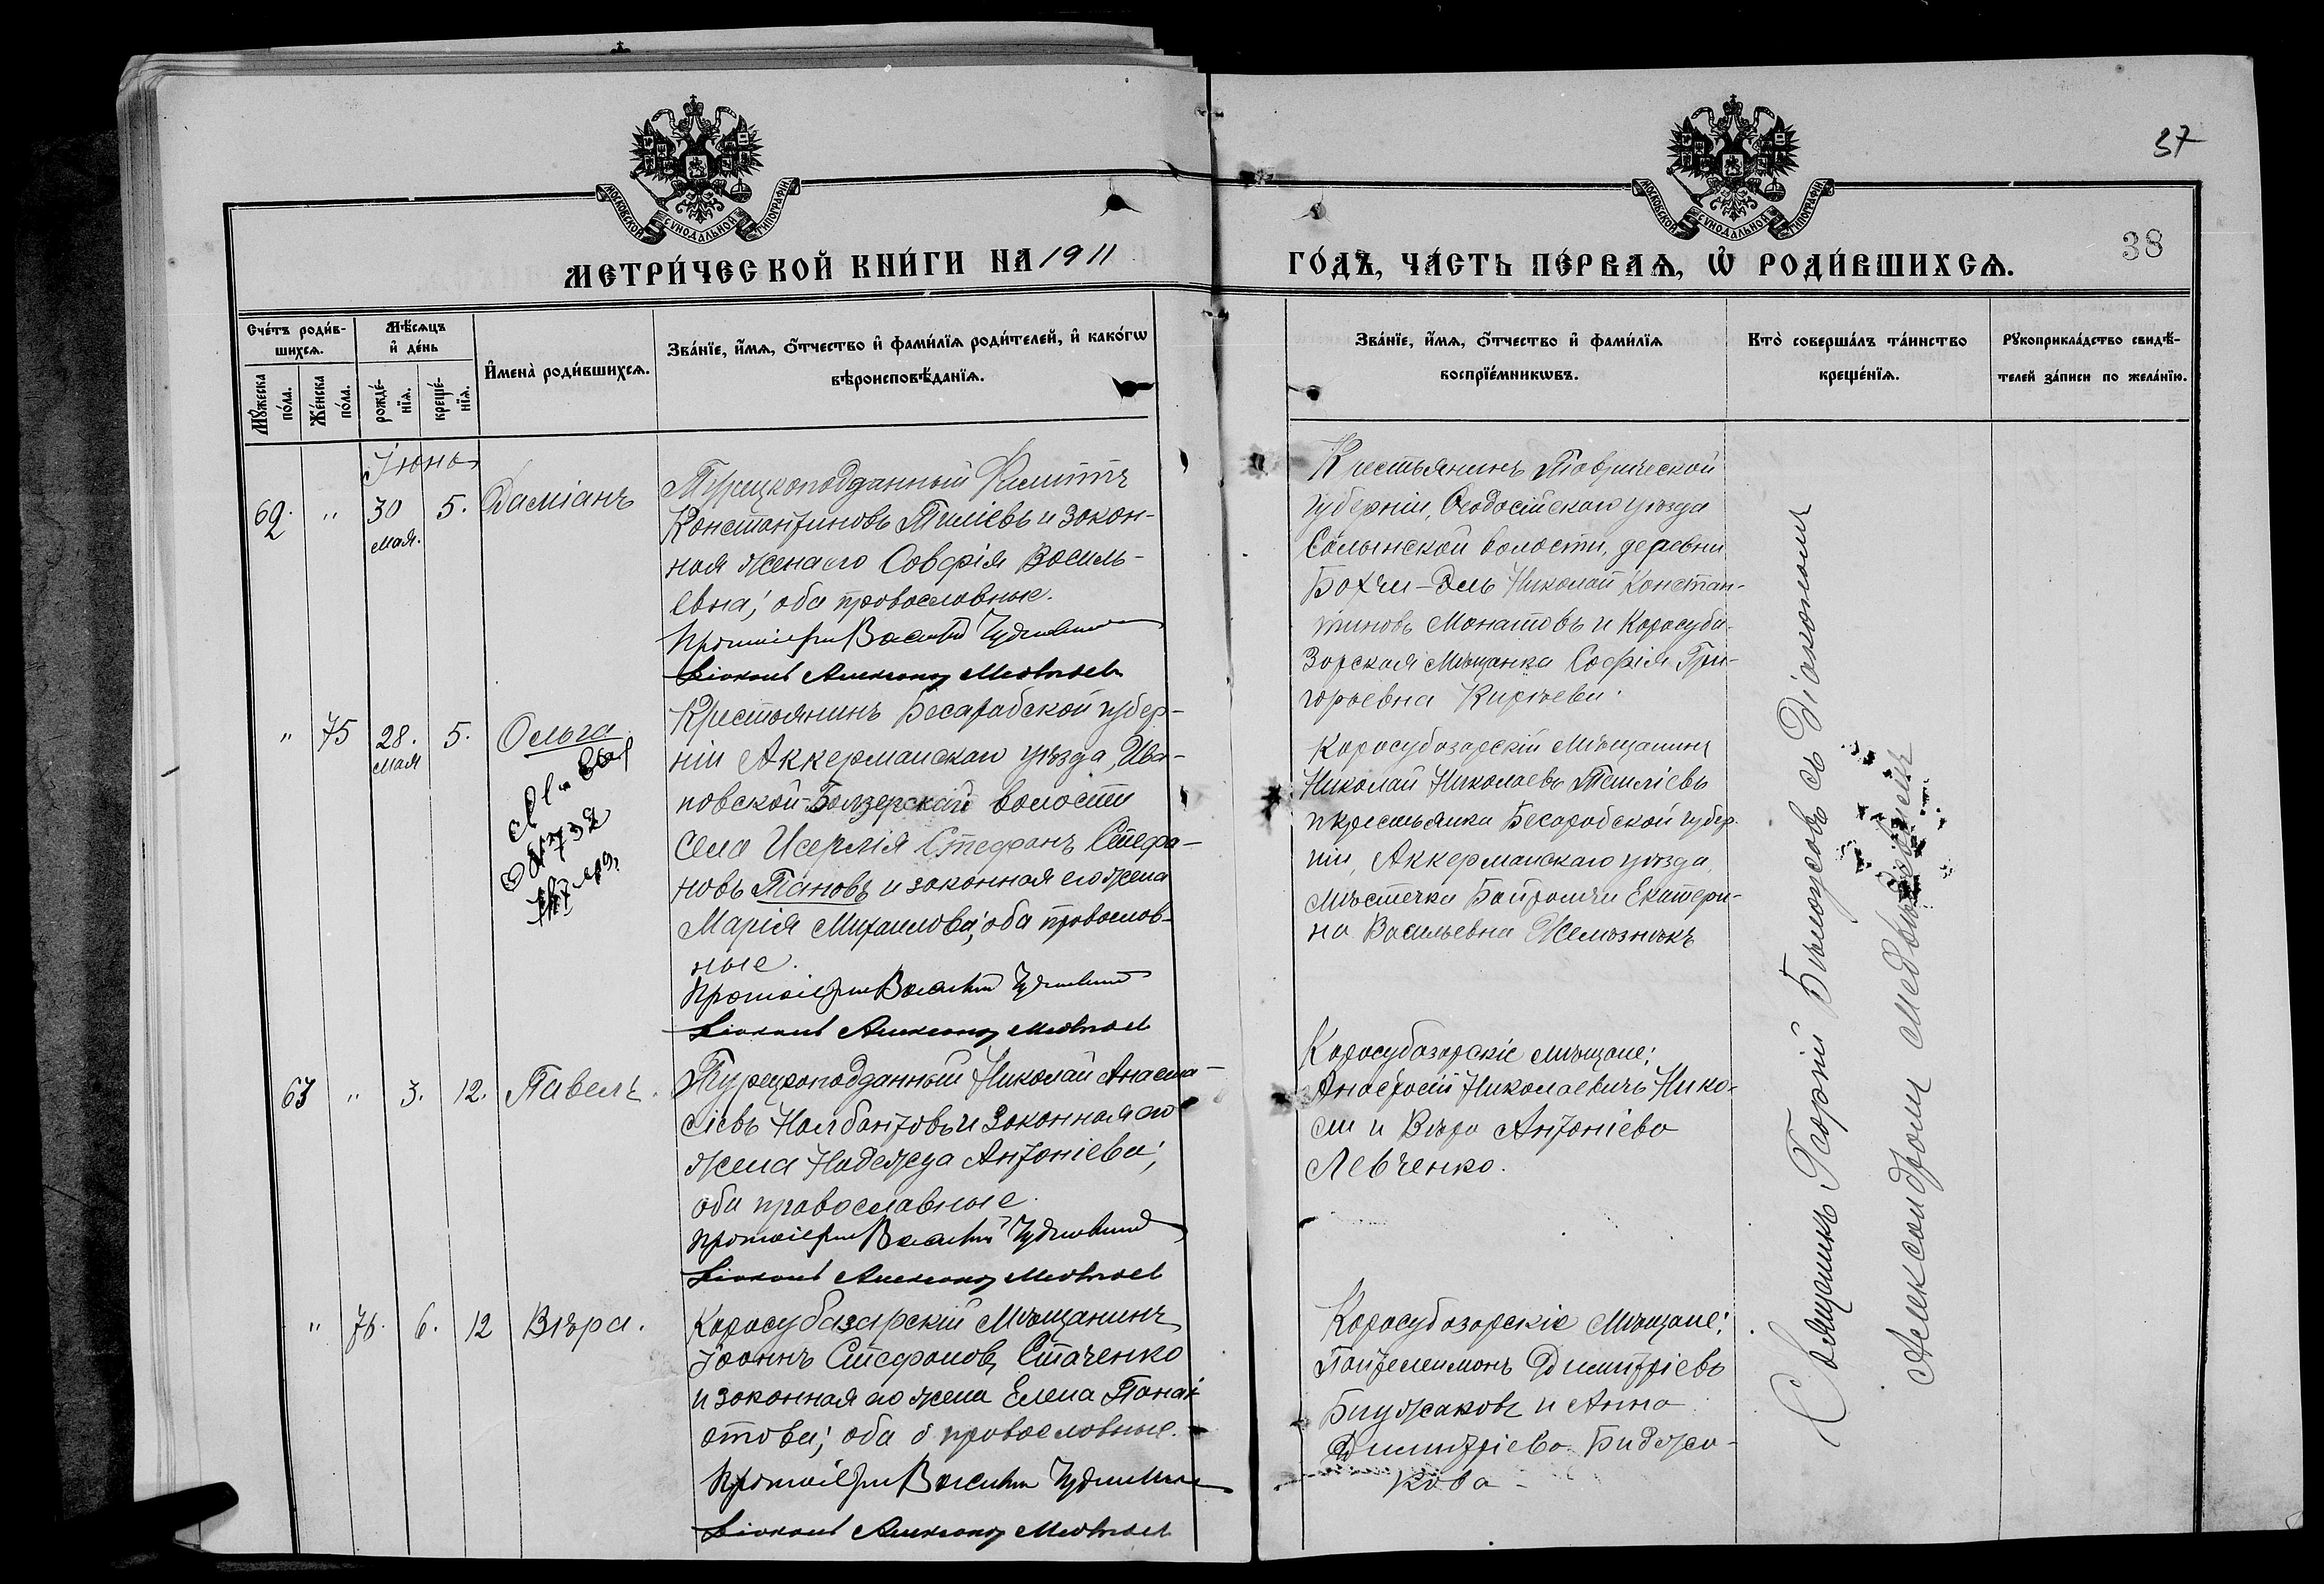 37
38
МОСКОВСКОЙ СѴНОДАЛЬНОЙ ТИПОГРАФІИ
МОСКОВСКОЙ СѴНОДАЛЬНОЙ ТИПОГРАФІИ
МЕТРИ́ЧЕСКОЙ КНИ́ГИ НА 1911
ГО́ДЪ, ЧА́СТЬ ПЕ́РВАѦ, Ѡ҆ РОДИ́ВШИХСѦ.
Сче́тъ роди́в-
шихсѧ.
Мꙋ́жеска
по́ла.
Же́нска
по́ла.
Мѣ́сѧцъ
и҆ де́нь
рожде́-
нїѧ.
креще́-
нїѧ.
И҆мена̀ роди́вшихсѧ.
Зва́нїе, и҆́мѧ, ѻ҆́тчество и҆ фами́лїѧ роди́телей, и҆ како́гѡ
вѣроисповѣ́данїѧ.
Зва́нїе, и҆́мѧ, ѻ҆́тчество и҆ фами́лїѧ
воспрїе́мникѡвъ.
Кто̀ соверша́лъ та́инство
креще́нїѧ.
Рꙋкоприкла́дство свидѣ́-
телей за́писи по жела́нїю.
Іюнь
62. " 30 5. Даміанъ
мая.
Турецкоподданный
Константиновъ Тиліевъ и закон-
ная жена его Совфія Василь-
евна; оба православные.
Протоіерей Василій
Діаконъ Александр Медведев
Крестьянинъ Таврической
губерніи, Ѳеодосійскаго уѣзда
Салынской волости, деревни
Бахчи-Эль Николай Констан-
тиновъ Манатовъ и Карасуба-
зарская мѣщанка Софія Гри-
горьевна Киріева.
" 75 28. 5. Ольга
мая
732
Крестьянинъ Бесарабской губер-
ніи Аккерманскаго уѣзда, Ива-
новской-Болгарской волости
села Исерлія Стефанъ Стефа-
новъ Тановъ и законная его жена
Марія Михаилова; оба православ-
ные.
Протоіерей Василій
Діаконъ Александр Медведев
Карасубазарскій мѣщанинъ
Николай Николаевъ Тешліевъ
и крестьянка Бесарабской губер-
ніи, Аккерманскаго уѣзда,
мѣстечка Байрамчи Екатери-
на Васильевна Желѣзнякъ
63 " 3. 12. Павелъ.
Турецкоподданный Николай Анаста-
сіевъ Налбантовъ и законная его
жена Надежда Антоніева;
оба православные.
Протоіерей Василій
Діаконъ Александр Медведев
Карасубазарскіе мѣщане:
Анастасій Николаевичъ Нико-
ли и Вѣра Антоніева
Левченко.
" 76. 6. 12 Вѣра.
Карасубазарскій мѣщанинъ
Іоаннъ Стефановъ Стаченко
и законная его жена Елена Панай-
отова; оба православные.
Протоіерей Василій
Діаконъ Александр Медведев
Карасубазарскіе мѣщане:
Пантелеимонъ Димитріевъ
Биуджаковъ и Анна
Димитріева Бидожа-
кова
Священникъ Георгій Бѣлоусовъ съ Діакономъ
Александромъ Медвѣдевымъ